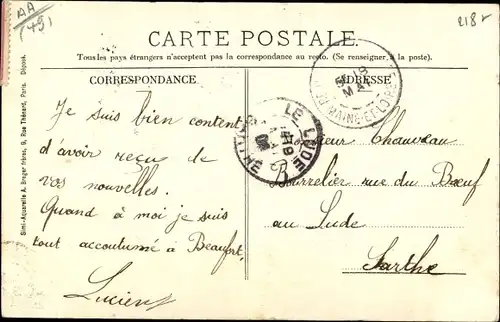 AA
(49)
218r
CARTE POSTALE.
Tous les pays étrangers n'acceptent pas la correspondance au recto. (Se renseigner à la poste).
CORRESPONDANCE
ADRESSE
Je suis bien content
d'avoir reçu de
vos nouvelles.
Quand à moi je suis
tout accoutumé à Beaufort.
Lucien
Monsieur Chauveau
Bourrelier rue du Bœuf
au Lude
Sarthe
LE LUDE
SARTHE
MAINE-ET-LOIRE
Simi-Aquarelle A. Breger frères, 9, Rue Thénard, Paris. Déposé.